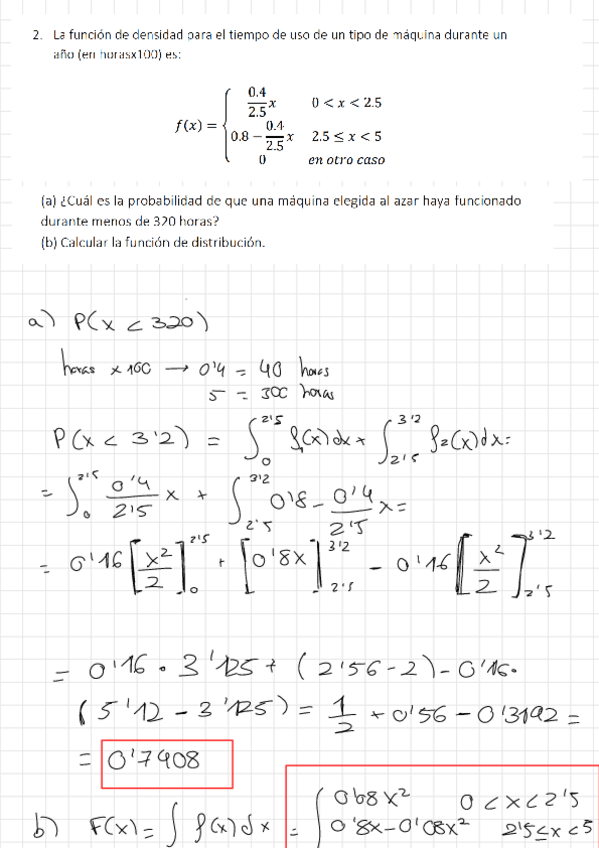 2. La función de densidad para el tiempo de uso de un tipo de máquina durante un
año (en horasx100) es:
f(x) = { 0.4/2.5 x 0 < x < 2.5
0.8 − 0.4/2.5 x 2.5 ≤ x < 5
0 en otro caso
(a) ¿Cuál es la probabilidad de que una máquina elegida al azar haya funcionado
durante menos de 320 horas?
(b) Calcular la función de distribución.
a) P(x < 320)
horas x 100 → 0'4 = 40 horas
5 = 300 horas
P(x < 3'2) = ∫₀^2'5 f₁(x)dx + ∫_2'5^3'2 f₂(x)dx =
= ∫₀^2'5 0'4/2'5 x + ∫_2'5^3'2 0'8 − 0'4/2'5 x =
= 0'16 [x²/2]₀^2'5 + [0'8x]_2'5^3'2 − 0'16 [x²/2]_2'5^3'2
= 0'16 · 3'125 + (2'56 − 2) − 0'16·
(5'12 − 3'125) = 1/2 + 0'56 − 0'3192 =
= 0'7408
b) F(x) = ∫ f(x) dx = { 0'08x² 0 < x < 2'5
0'8x − 0'08x² 2'5 ≤ x < 5